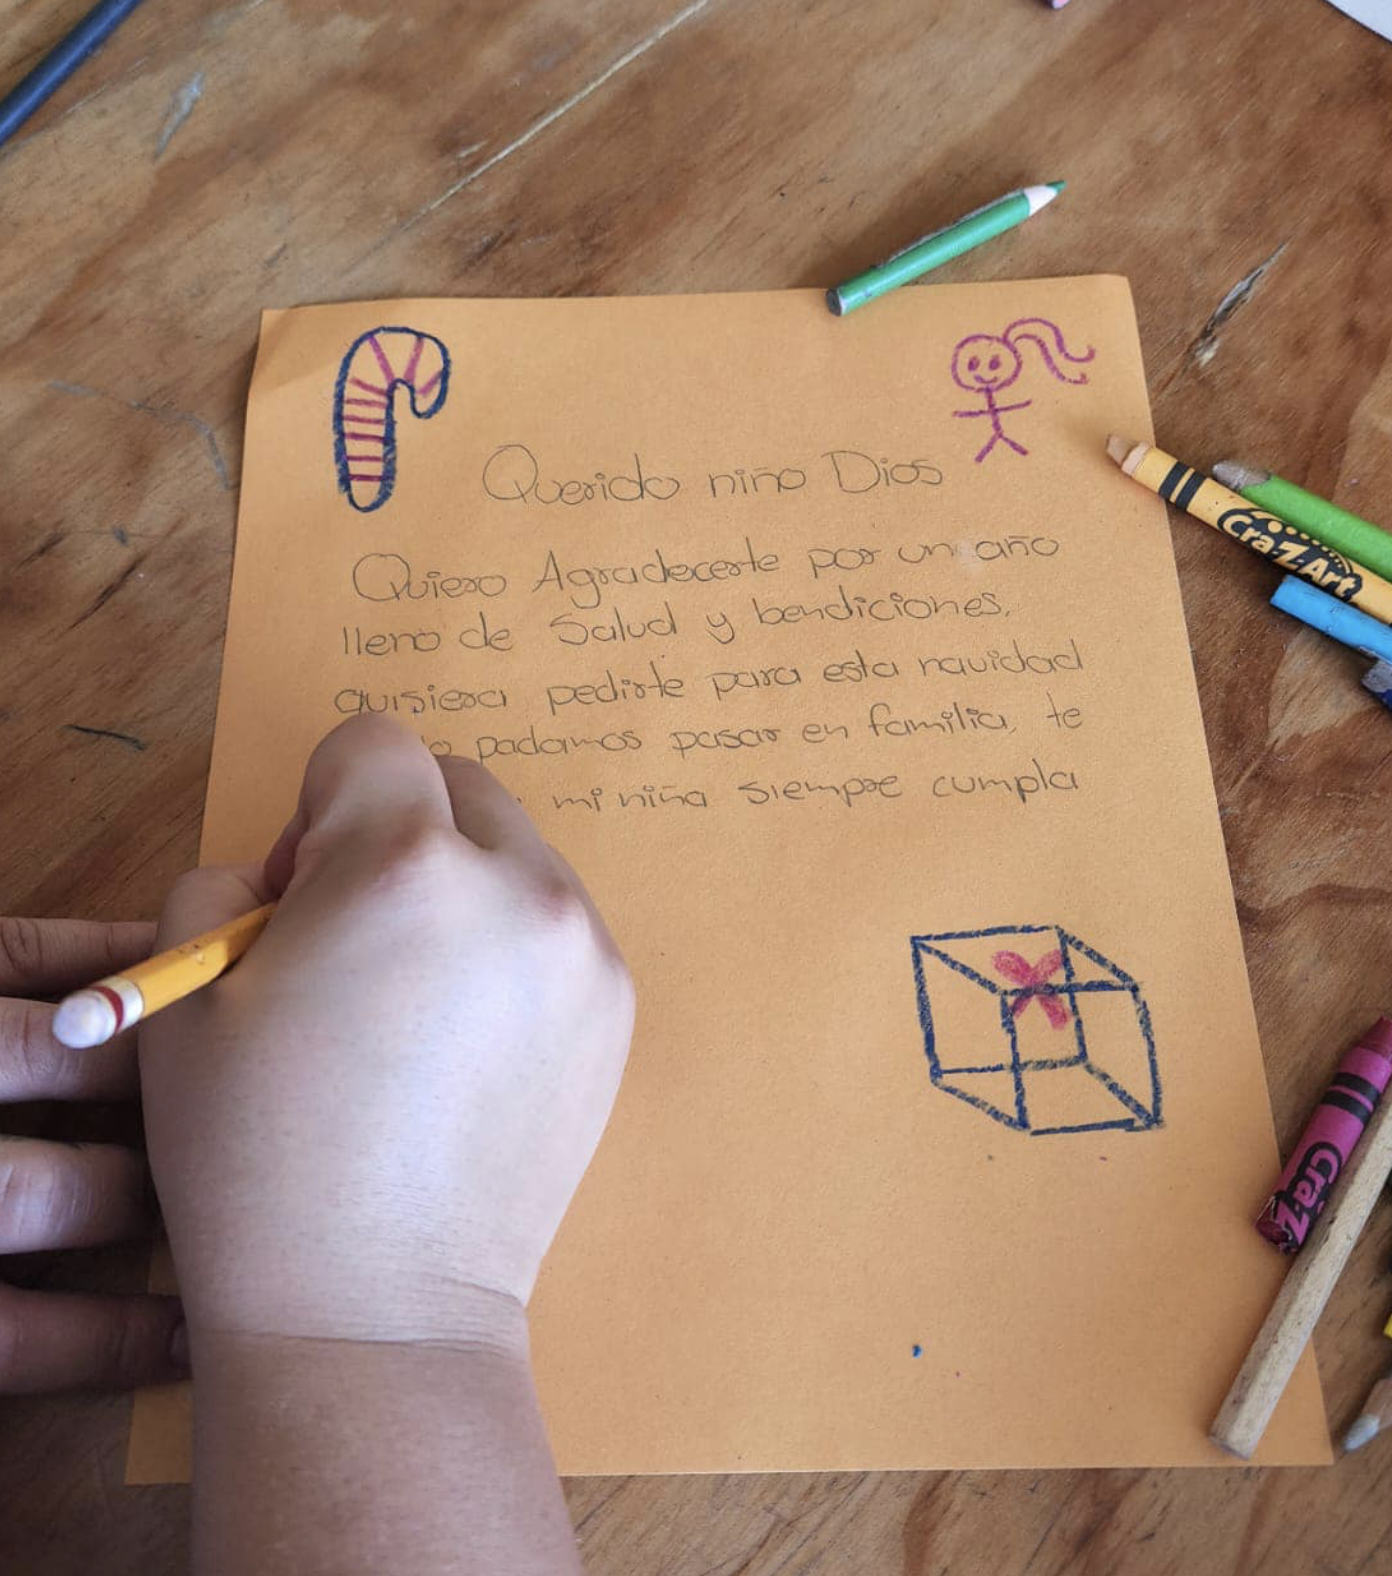 Querido niño Dios
Quiero Agradecerte por un año
lleno de Salud y bendiciones,
quisiera pedirte para esta navidad
padamos pasar en familia, te
mi niña siempre cumpla
Cra-Z-Art
Cra-Z